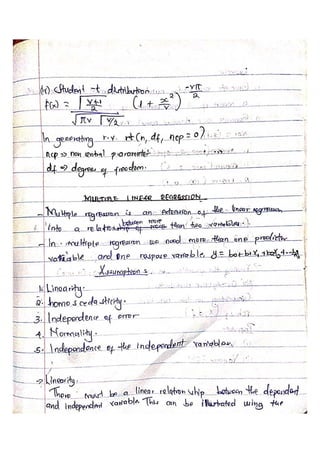 (4) Student -t distribution
f(x) = Γ(v+1)/2 / √πv Γv/2 (1 + x²/v) -vπ/2
In generating r.v. rt(n, df, ncp = 0)
ncp => non central parameter
df => degree of freedom.
MULTIPLE LINEAR REGRESSION
- Multiple regression is an extension of the linear regression
into a relationship between more than two variables.
- In multiple regression we need more than one predictor
variable and one respose variable y = b0 + b1x1 +
Assumptions.
1. Linearity.
2. homoscedasticity.
3. Independence of error
4. Normality.
5. Independence of the independent variables.
-> Linearity:
There must be a linear relationship between the depended
and independent variable This can be illustrated using the